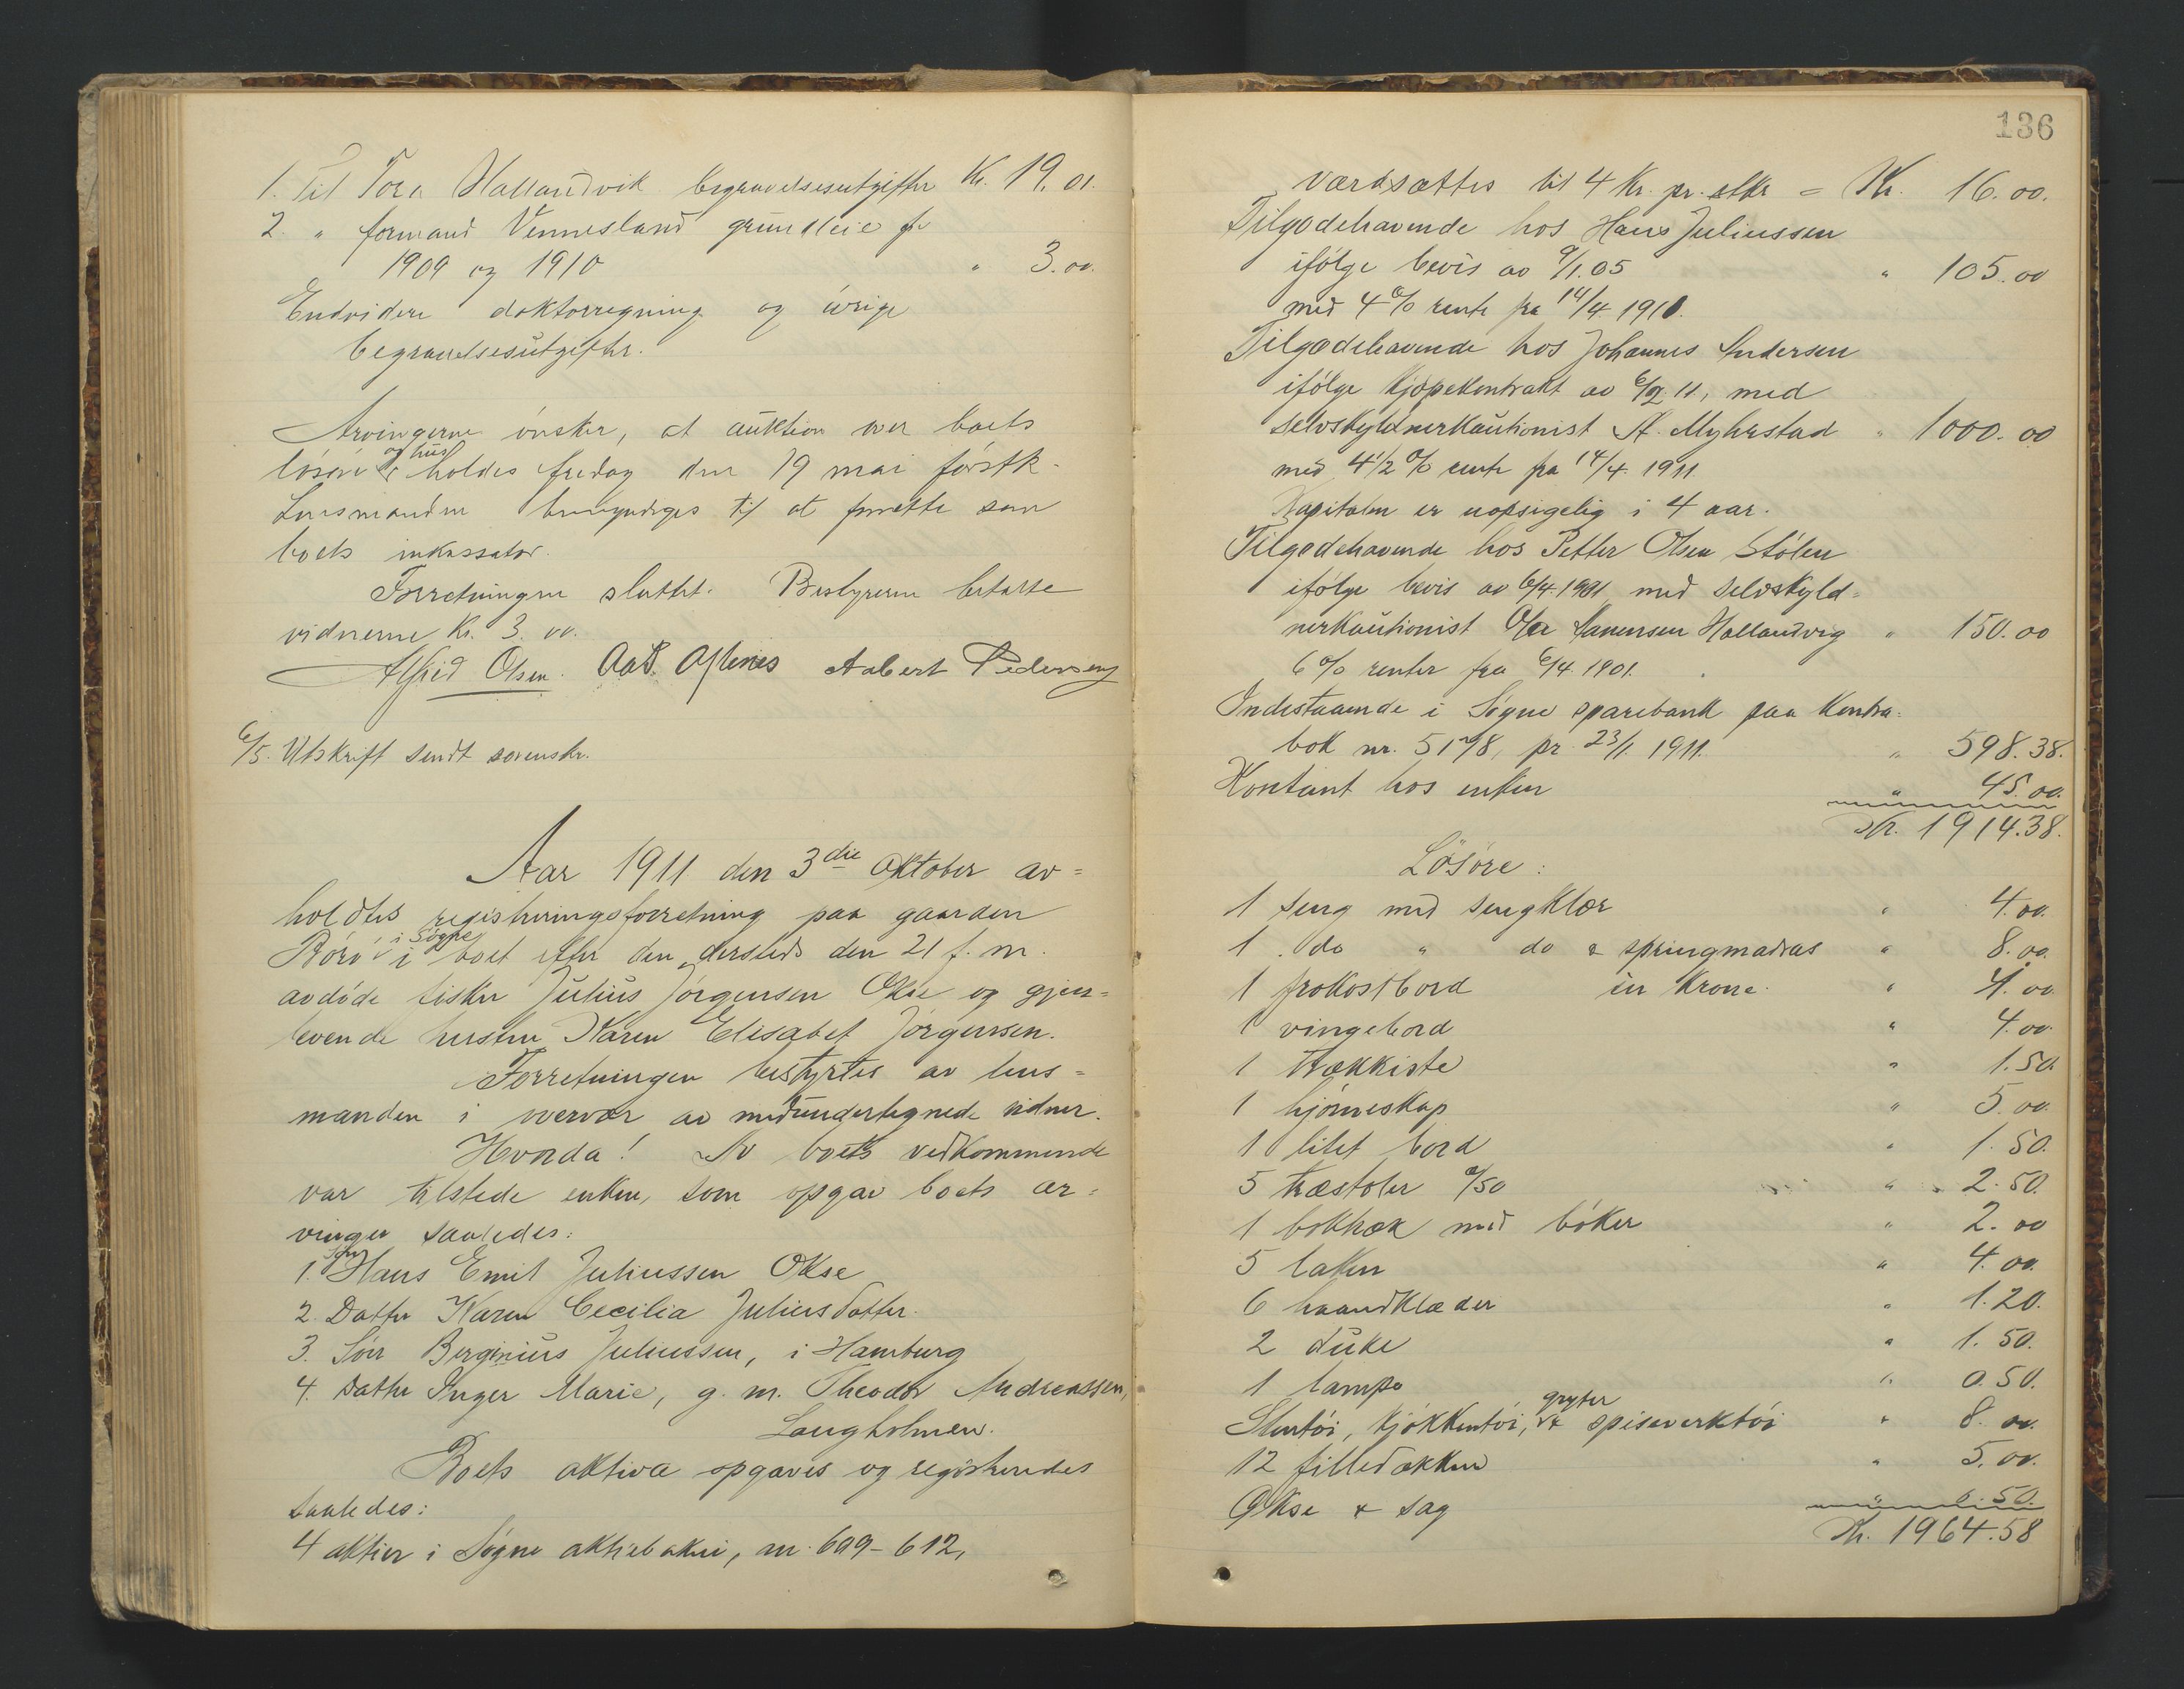 1. Til Tora Hallandvik begravelsesutgifter Kr. 19.01.
2. " formand Vennesland grundleie for
1909 og 1910 " 3.00.
Endvidere doktorregning og øvrige
begravelsesutgifter.
Arvingerne ønsker, at auktion over boets
løsøre og hus holdes fredag den 19 mai førstk.
Lensmanden bemyndiges til at forrette som
boets inkassator.
Forretningen sluttet. Bestyreren betalte
vidnerne Kr. 3.00.
Alfred Olsen. Aabert Pedersen
6/5. Utskrift sendt sorenskr.
Aar 1911 den 3die oktober av=
holdtes registreringsforretning paa gaarden
Borø i Søgne i boet efter den dersteds den 21 f.m.
avdøde fisker Julius Jørgensen Okse og gjen=
levende hustru Karen Elisabet Jørgensen.
Forretningen bestyrtes av lens=
manden i overvær av medundertegnede vidner.
Hvorda! Av boets vedkommende
var tilstede enken, som opgav boets ar=
vinger saaledes:
1. Søn Hans Emil Juliussen Okse
2. Datter Karen Cecilia Juliusdatter.
3. Søn Berginius Juliussen, i Hamburg
4. Datter Inger Marie, g. m. Theodor Andreassen,
Langholmen.
Boets aktiva opgaves og registreredes
saaledes:
4 aktier i Søgne aktiebakeri, nr. 609-612,
136
værdsættes til 4 Kr. pr. stkr = Kr. 16.00.
Tilgodehavende hos Hans Juliussen
ifølge bevis av 9/1.05 " 105.00
med 4 % rente fra 14/4 1910.
Tilgodehavende hos Johannes Andersen
ifølge kjøpekontrakt av 6/2 11, med
selvskyldnerkautionist A. Myhrstad " 1000.00
med 4 1/2 % rente fra 14/4. 1911.
Kapitalen er uopsigelig i 4 aar.
Tilgodehavende hos Petter Olsen Stølen
ifølge bevis av 6/4. 1901 med selvskyld=
nerkautionist Ola Hallandvig " 150.00
6 % renter fra 6/4 1901.
Indestaaende i Søgne sparebank paa kontra=
bok nr. 5178, pr. 23/1. 1911. " 598.38.
Kontant hos enken " 45.00.
Kr. 1914.38.
Løsøre:
1 seng med sengklær " 4.00.
1 do " do & springmadras " 8.00.
1 frokostbord en krone. " 1.00.
1 vingebord " 4.00.
1 trækkiste " 1.50.
1 hjørneskap " 5.00.
1 litet bord " 1.50.
5 træstoler a/50 " 2.50.
1 bokhæk med bøker " 2.00
5 laken " 4.00.
6 haandklæder " 1.20.
2 duke " 1.50.
1 lampe " 0.50.
Stentøi, kjøkkentøi, gryter & spiseverktøi " 8.00.
12 filledækken " 5.00.
Økse & sag " 0.50.
Kr. 1964.58